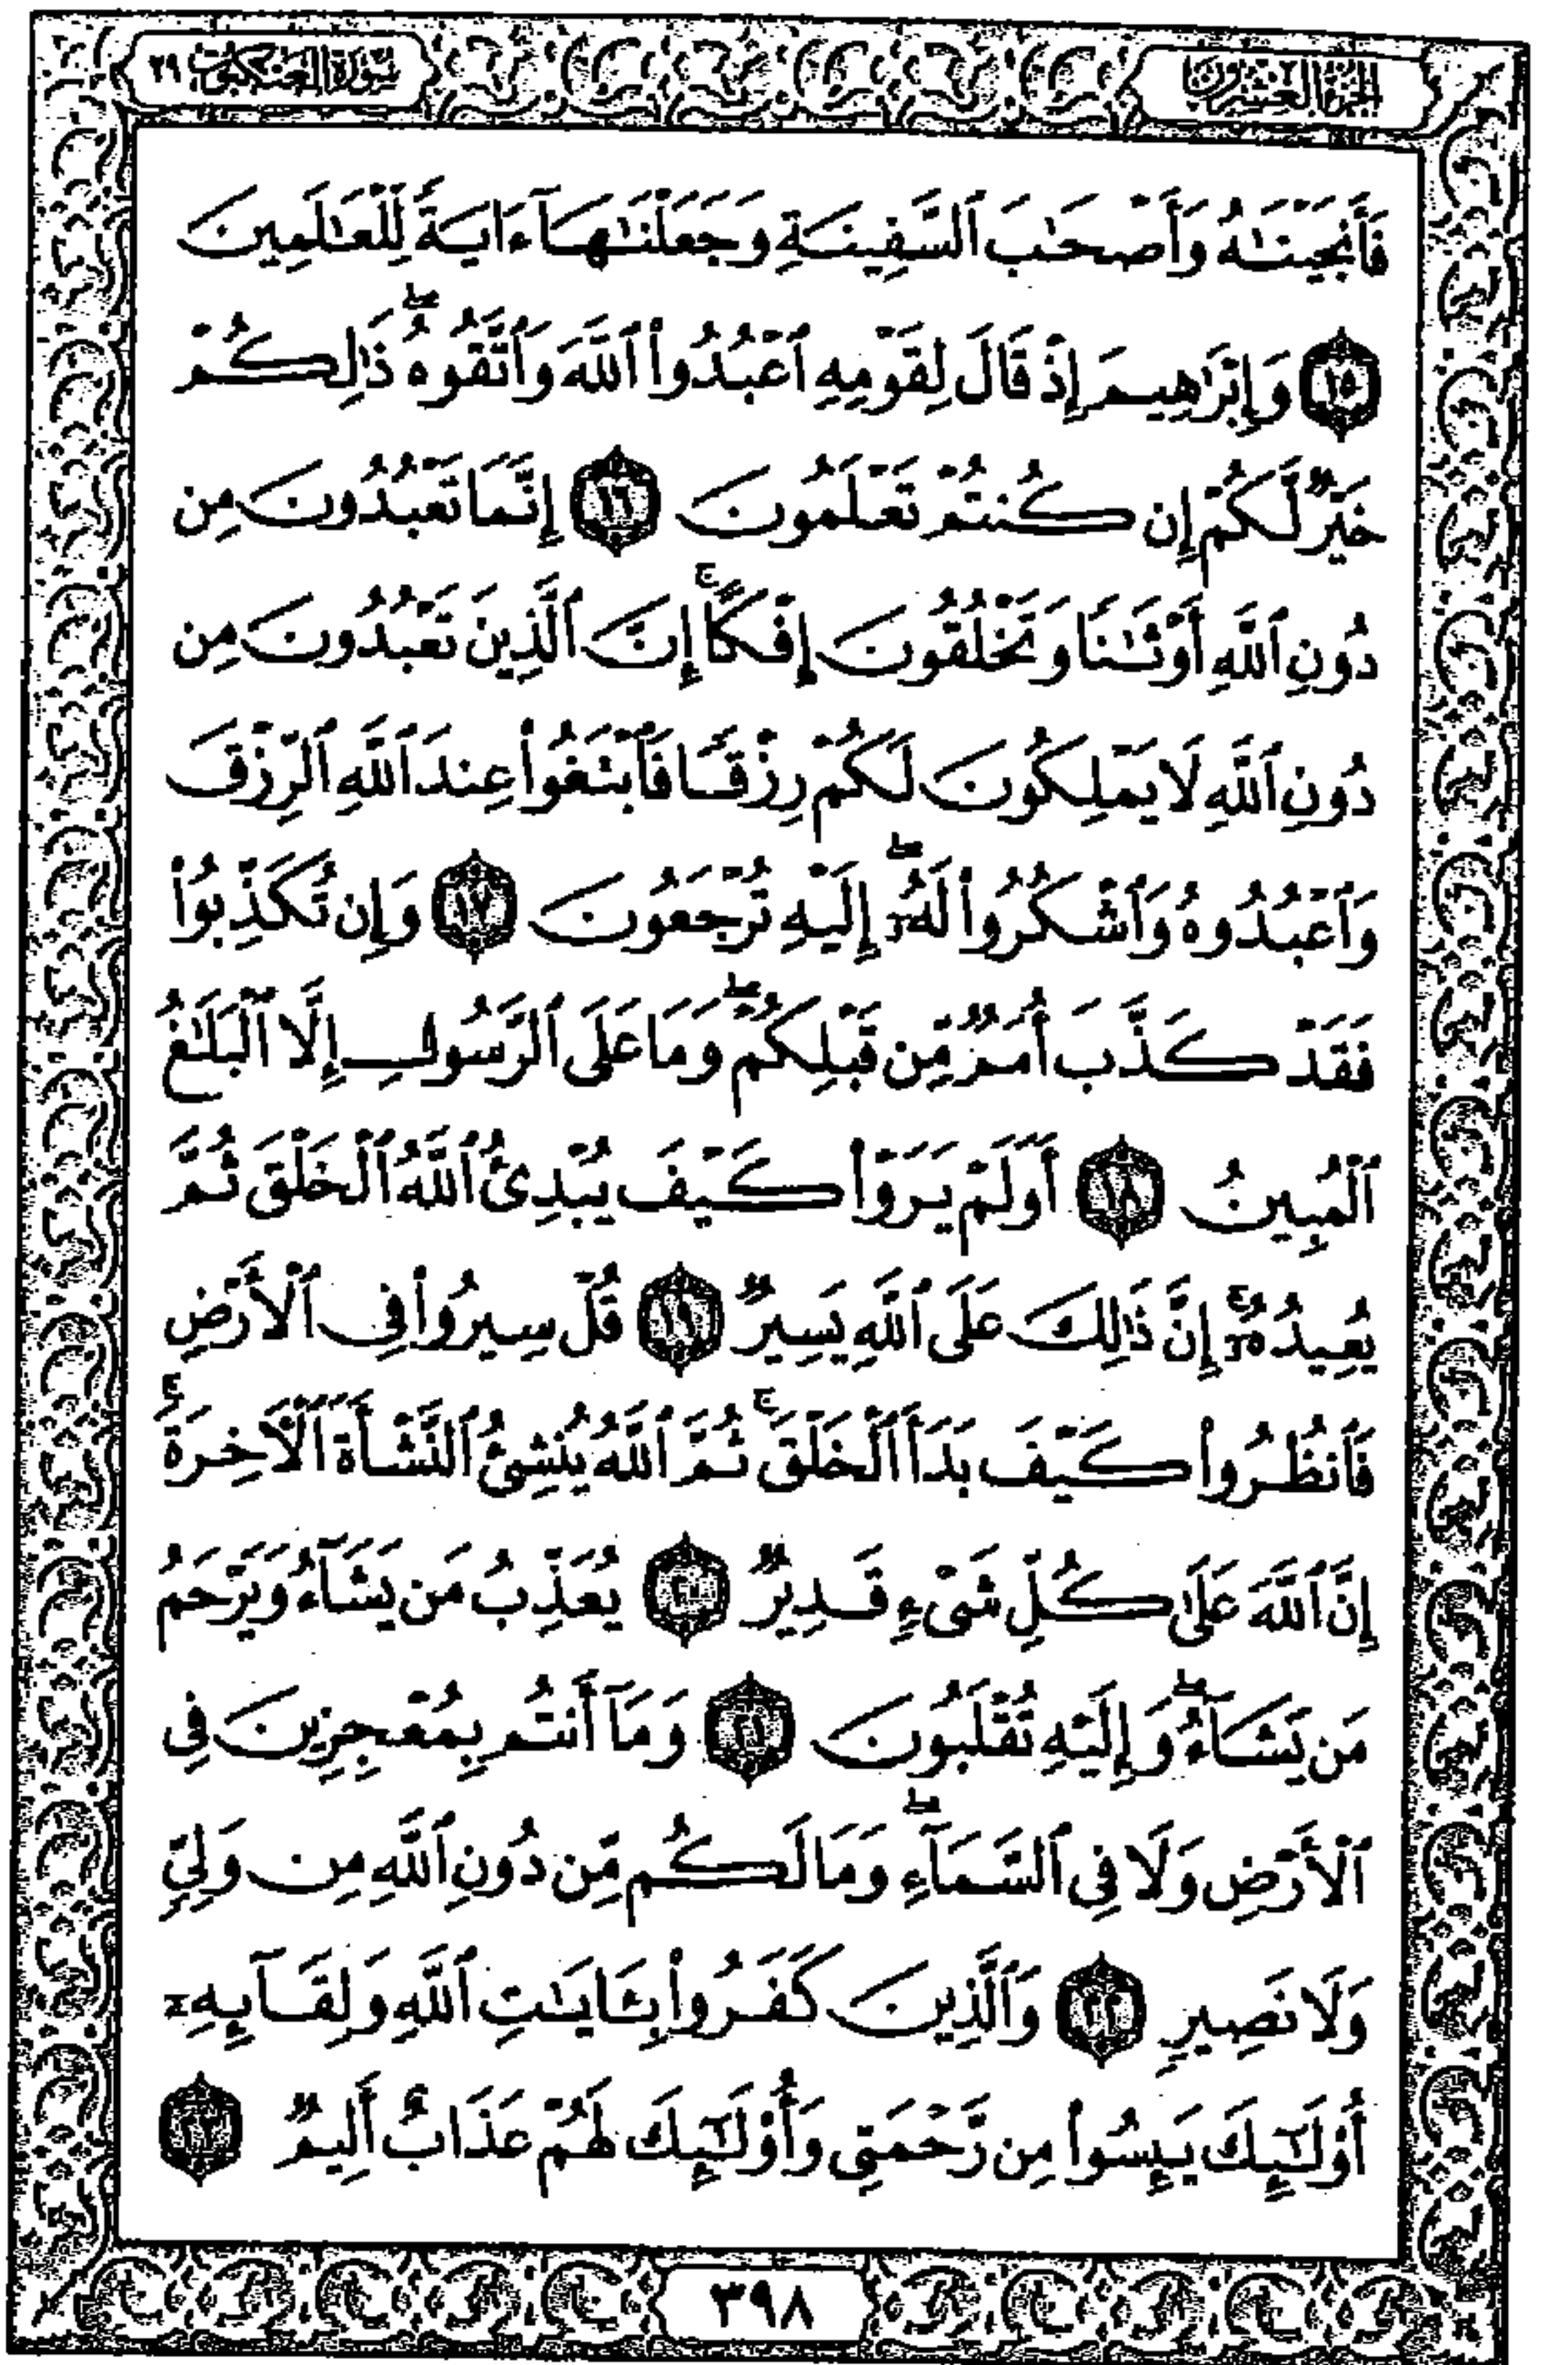 الجزء العشرون
سورة العنكبوت ٢٩
فَأَنجَيْنَٰهُ وَأَصْحَٰبَ ٱلسَّفِينَةِ وَجَعَلْنَٰهَآ ءَايَةً لِّلْعَٰلَمِينَ
١٥ وَإِبْرَٰهِيمَ إِذْ قَالَ لِقَوْمِهِ ٱعْبُدُوا۟ ٱللَّهَ وَٱتَّقُوهُ ۖ ذَٰلِكُمْ
خَيْرٌ لَّكُمْ إِن كُنتُمْ تَعْلَمُونَ ١٦ إِنَّمَا تَعْبُدُونَ مِن
دُونِ ٱللَّهِ أَوْثَٰنًا وَتَخْلُقُونَ إِفْكًا ۚ إِنَّ ٱلَّذِينَ تَعْبُدُونَ مِن
دُونِ ٱللَّهِ لَا يَمْلِكُونَ لَكُمْ رِزْقًا فَٱبْتَغُوا۟ عِندَ ٱللَّهِ ٱلرِّزْقَ
وَٱعْبُدُوهُ وَٱشْكُرُوا۟ لَهُۥٓ ۖ إِلَيْهِ تُرْجَعُونَ ١٧ وَإِن تُكَذِّبُوا۟
فَقَدْ كَذَّبَ أُمَمٌ مِّن قَبْلِكُمْ ۖ وَمَا عَلَى ٱلرَّسُولِ إِلَّا ٱلْبَلَٰغُ
ٱلْمُبِينُ ١٨ أَوَلَمْ يَرَوْا۟ كَيْفَ يُبْدِئُ ٱللَّهُ ٱلْخَلْقَ ثُمَّ
يُعِيدُهُۥٓ ۚ إِنَّ ذَٰلِكَ عَلَى ٱللَّهِ يَسِيرٌ ١٩ قُلْ سِيرُوا۟ فِى ٱلْأَرْضِ
فَٱنظُرُوا۟ كَيْفَ بَدَأَ ٱلْخَلْقَ ۚ ثُمَّ ٱللَّهُ يُنشِئُ ٱلنَّشْأَةَ ٱلْءَاخِرَةَ ۚ
إِنَّ ٱللَّهَ عَلَىٰ كُلِّ شَىْءٍ قَدِيرٌ ٢٠ يُعَذِّبُ مَن يَشَآءُ وَيَرْحَمُ
مَن يَشَآءُ ۖ وَإِلَيْهِ تُقْلَبُونَ ٢١ وَمَآ أَنتُم بِمُعْجِزِينَ فِى
ٱلْأَرْضِ وَلَا فِى ٱلسَّمَآءِ ۖ وَمَا لَكُم مِّن دُونِ ٱللَّهِ مِن وَلِىٍّ
وَلَا نَصِيرٍ ٢٢ وَٱلَّذِينَ كَفَرُوا۟ بِـَٔايَٰتِ ٱللَّهِ وَلِقَآئِهِۦٓ
أُو۟لَٰٓئِكَ يَئِسُوا۟ مِن رَّحْمَتِى وَأُو۟لَٰٓئِكَ لَهُمْ عَذَابٌ أَلِيمٌ ٢٣
٣٩٨